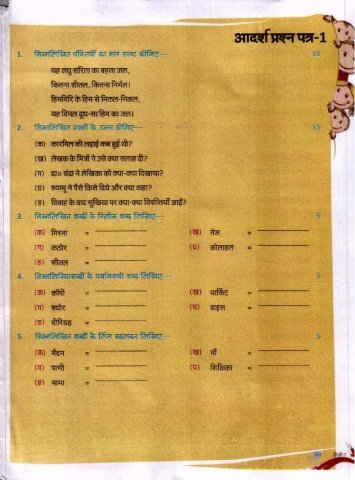 आदर्श प्रश्न पत्र-1
1. निम्नलिखित पंक्तियों का भाव स्पष्ट कीजिए— 10
यह लघु सरिता का बहता जल,
कितना शीतल, कितना निर्मल।
हिमगिरि के हिम से निकल-निकल,
यह विमल दूध-सा हिम का जल।
2. निम्नलिखित प्रश्नों के उत्तर दीजिए— 15
(क) कारगिल की लड़ाई कब हुई थी?
(ख) लेखक के मित्रों ने उसे क्या सलाह दी?
(ग) डा० चंद्रा ने लेखिका को क्या-क्या दिखाया?
(घ) श्यामू ने पैसे किसे दिये और क्या कहा?
(ङ) विवाह के बाद सुखिया पर क्या-क्या विपत्तियाँ आईं?
3. निम्नलिखित शब्दों के विलोम शब्द लिखिए— 5
(क) गिरना = (ख) तेज =
(ग) कठोर = (घ) कोलाहल =
(ङ) शीतल =
4. निम्नलिखित शब्दों के पर्यायवाची शब्द लिखिए— 5
(क) कॉपी = (ख) मार्किट =
(ग) श्योर = (घ) डाइस =
(ङ) पीरियड =
5. निम्नलिखित शब्दों के लिंग बदलकर लिखिए— 5
(क) मैडम = (ख) माँ =
(ग) पत्नी = (घ) शिक्षिका =
(ङ) मामा =